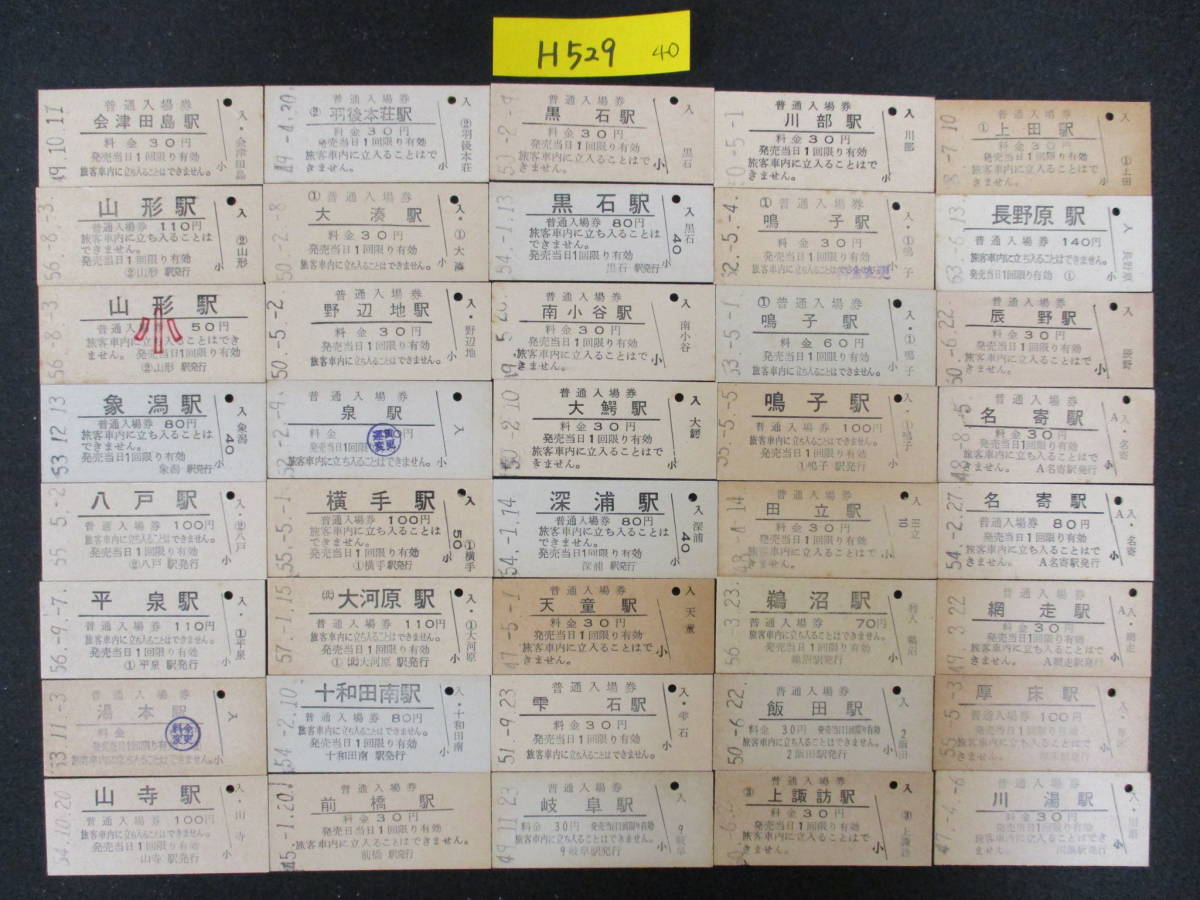 H529 40
49.10.11
普通入場券
会津田島駅
料金30円
発売当日1回限り有効
旅客車内に立ち入ることはできません。
小
入・会津田島
49.-4.30
普通入場券
②羽後本荘駅
料金30円
発売当日1回限り有効
旅客車内に立入ることはできません。
小
入・②羽後本荘
53.-2.-9
普通入場券
黒石駅
料金30円
発売当日1回限り有効
旅客車内に立入ることはできません。
小
入
黒石
50.-5.-1
普通入場券
川部駅
料金30円
発売当日1回限り有効
旅客車内に立入ることはできません。
小
入 川部
8.-7.10
普通入場券
①上田駅
料金30円
発売当日1回限り有効
旅客車内に立入ることはできません。
小
①上田
56.-8.-3
山形駅
普通入場券 110円
旅客車内に立ち入ることは
できません。
発売当日1回限り有効
②山形 駅発行
小
入・②山形
50.-2.-8
普通入場券
①大湊駅
料金30円
発売当日1回限り有効
旅客車内に立ち入ることはできません。
小
入・①大湊
54.-1.13
黒石駅
普通入場券 80円
旅客車内に立ち入ることは
できません。
発売当日1回限り有効
黒石 駅発行
小
入 黒石
40
52.-5.-4
普通入場券
①鳴子駅
料金30円
発売当日1回限り有効
旅客車内に立ち入ることはできません。
小
入・①鳴子
63.-6.13
長野原駅
普通入場券 140円
旅客車内に立ち入ることはできません。
発売当日1回限り有効 ①
小
入 長野原
56.-8.-3
山形駅
普通入 50円
小
旅客車内に立ち入ることはでき
ません。発売当日1回限り有効
②山形 駅発行
小
50.-5.-2
普通入場券
野辺地駅
料金30円
発売当日1回限り有効
旅客車内に立ち入ることはできません。
小
入・野辺地
普通入場券
南小谷駅
料金30円
発売当日1回限り有効
旅客車内に立入ることはできません。
小
入
南小谷
53.-5.-1
普通入場券
①鳴子駅
料金60円
発売当日1回限り有効
旅客車内に立ち入ることはできません。
小
入・①鳴子
50.-6.22
普通入場券
辰野駅
料金30円
発売当日1回限り有効
旅客車内に立入ることはできません。
小
入
辰野
53.12.13
象潟駅
普通入場券 80円
発売当日1回限り有効
旅客車内に立ち入ることは
できません。
象潟 駅発行
小
入 象潟
40
52.-2.-9
普通入場券
泉駅
料金
運賃変更
発売当日1回限り有効
旅客車内に立ち入ることはできません。
小
入
50.-2.10
普通入場券
大鰐駅
料金30円
発売当日1回限り有効
旅客車内に立入ることはできません。
小
入
大鰐
55.-5.-5
鳴子駅
普通入場券 100円
旅客車内に立ち入ることはで
きません。
発売当日1回限り有効
①鳴子駅発行
小
入・①鳴子
48.-8.-5
普通入場券
名寄駅
料金30円
発売当日1回限り有効
旅客車内に立入ることはで
きません。 A名寄駅発行
小
A
入・名寄
55.-5.-2
八戸駅
普通入場券 100円
旅客車内に立ち入ることはできません。
発売当日1回限り有効
②八戸 駅発行
小
入・②八戸
55.-5.-1
横手駅
普通入場券 100円
旅客車内に立ち入ることは
できません。
発売当日1回限り有効
①横手 駅発行
小
入
50
①横手
54.-1.14
深浦駅
普通入場券 80円
旅客車内に立ち入ることは
できません。
発売当日1回限り有効
深浦 駅発行
小
入 深浦
40
48.-4.14
普通入場券
田立駅
料金30円
発売当日1回限り有効
旅客車内に立入ることはできません。
小
入 田立
10
54.-2.27
名寄駅
普通入場券 80円
発売当日1回限り有効
旅客車内に立ち入ることはで
きません。 A名寄駅発行
小
入・名寄
56.-9.-7
平泉駅
普通入場券 110円
旅客車内に立ち入ることはできません。
発売当日1回限り有効
①平泉 駅発行
小
入・①平泉
57.-1.15
(北)大河原駅
普通入場券 110円
旅客車内に立ち入ることはできません。
発売当日1回限り有効
①(北)大河原 駅発行
小
入・①大河原
47.-5.-1
普通入場券
天童駅
料金30円
発売当日1回限り有効
旅客車内に立入ることはできません。
小
入 天童
56.-3.23
鵜沼駅
普通入場券 70円
発売当日1回限り有効
旅客車内に立ち入ることはできません。
鵜沼駅発行
小
鵜沼
49.-3.22
普通入場券
網走駅
料金30円
発売当日1回限り有効
旅客車内に立入ることはで
きません。 A網走駅発行
小
A
入・網走
53.11.-3
普通入場券
湯本駅
料金
料金変更
発売当日1回限り有効
旅客車内に立ち入ることはできません。
小
入
54.-2.10
十和田南駅
普通入場券 80円
発売当日1回限り有効
旅客車内に立ち入ることはできません。
十和田南 駅発行
小
入・十和田南
51.-9.23
普通入場券
雫石駅
料金30円
発売当日1回限り有効
旅客車内に立ち入ることはできません。
小
入・雫石
50.-6.22
普通入場券
飯田駅
料金 30円 発売当日1回限り有効
旅客車内に立ち入ることはできません。
2飯田駅発行
小
入
2飯田
55.-5.-3
厚床駅
普通入場券 100円
発売当日1回限り有効
旅客車内に立ち入ることはで
きません。 厚床駅発行
小
54.10.20
山寺駅
普通入場券 100円
旅客車内に立ち入ることはできません。
発売当日1回限り有効
山寺 駅発行
小
入・山寺
45.-1.20
普通入場券
前橋駅
料金30円
発売当日1回限り有効
旅客車内に立入ることはできません。
前橋 駅発行
小
49.11.23
普通入場券
岐阜駅
料金 30円 発売当日1回限り有効
旅客車内に立ち入ることはできません。
9岐阜駅発行
小
入
9岐阜
普通入場券
③上諏訪駅
料金30円
発売当日1回限り有効
旅客車内に立入ることはできません。
小
入
③上諏訪
47.-4.-6
普通入場券
川湯駅
料金30円
発売当日1回限り有効
旅客車内に立入ることはで
きません。 川湯駅発行
小
入・川湯